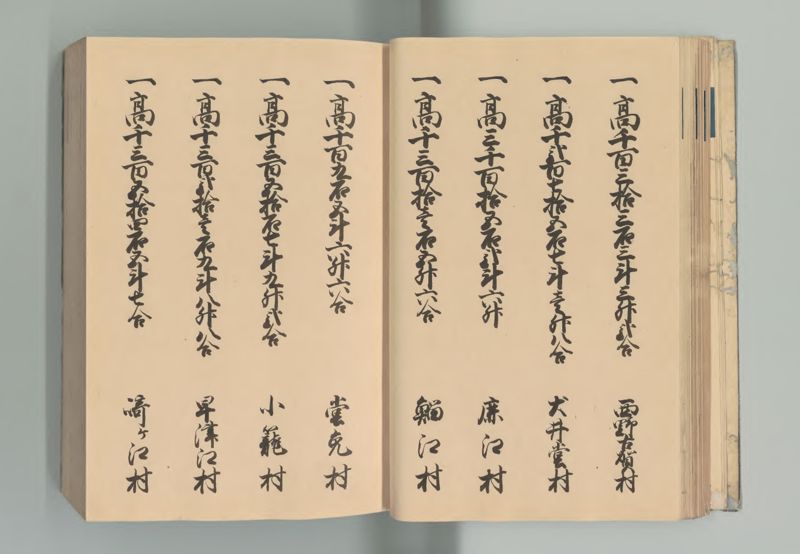 一高千百三拾三石三斗三升弐合 西野古賀村
一高千弐百七拾五石七斗壱升八合 犬井堂村
一高三千百拾五石弐斗六升 鹿江村
一高千三百拾壱石五升六合 鰡江村
一高千百九石五斗六升六合 堂免村
一高千三百五拾石七斗九升弐合 小籠村
一高千三百弐拾壱石九斗八升八合 早津江村
一高千三百五拾四石五斗七合 崎ケ江村